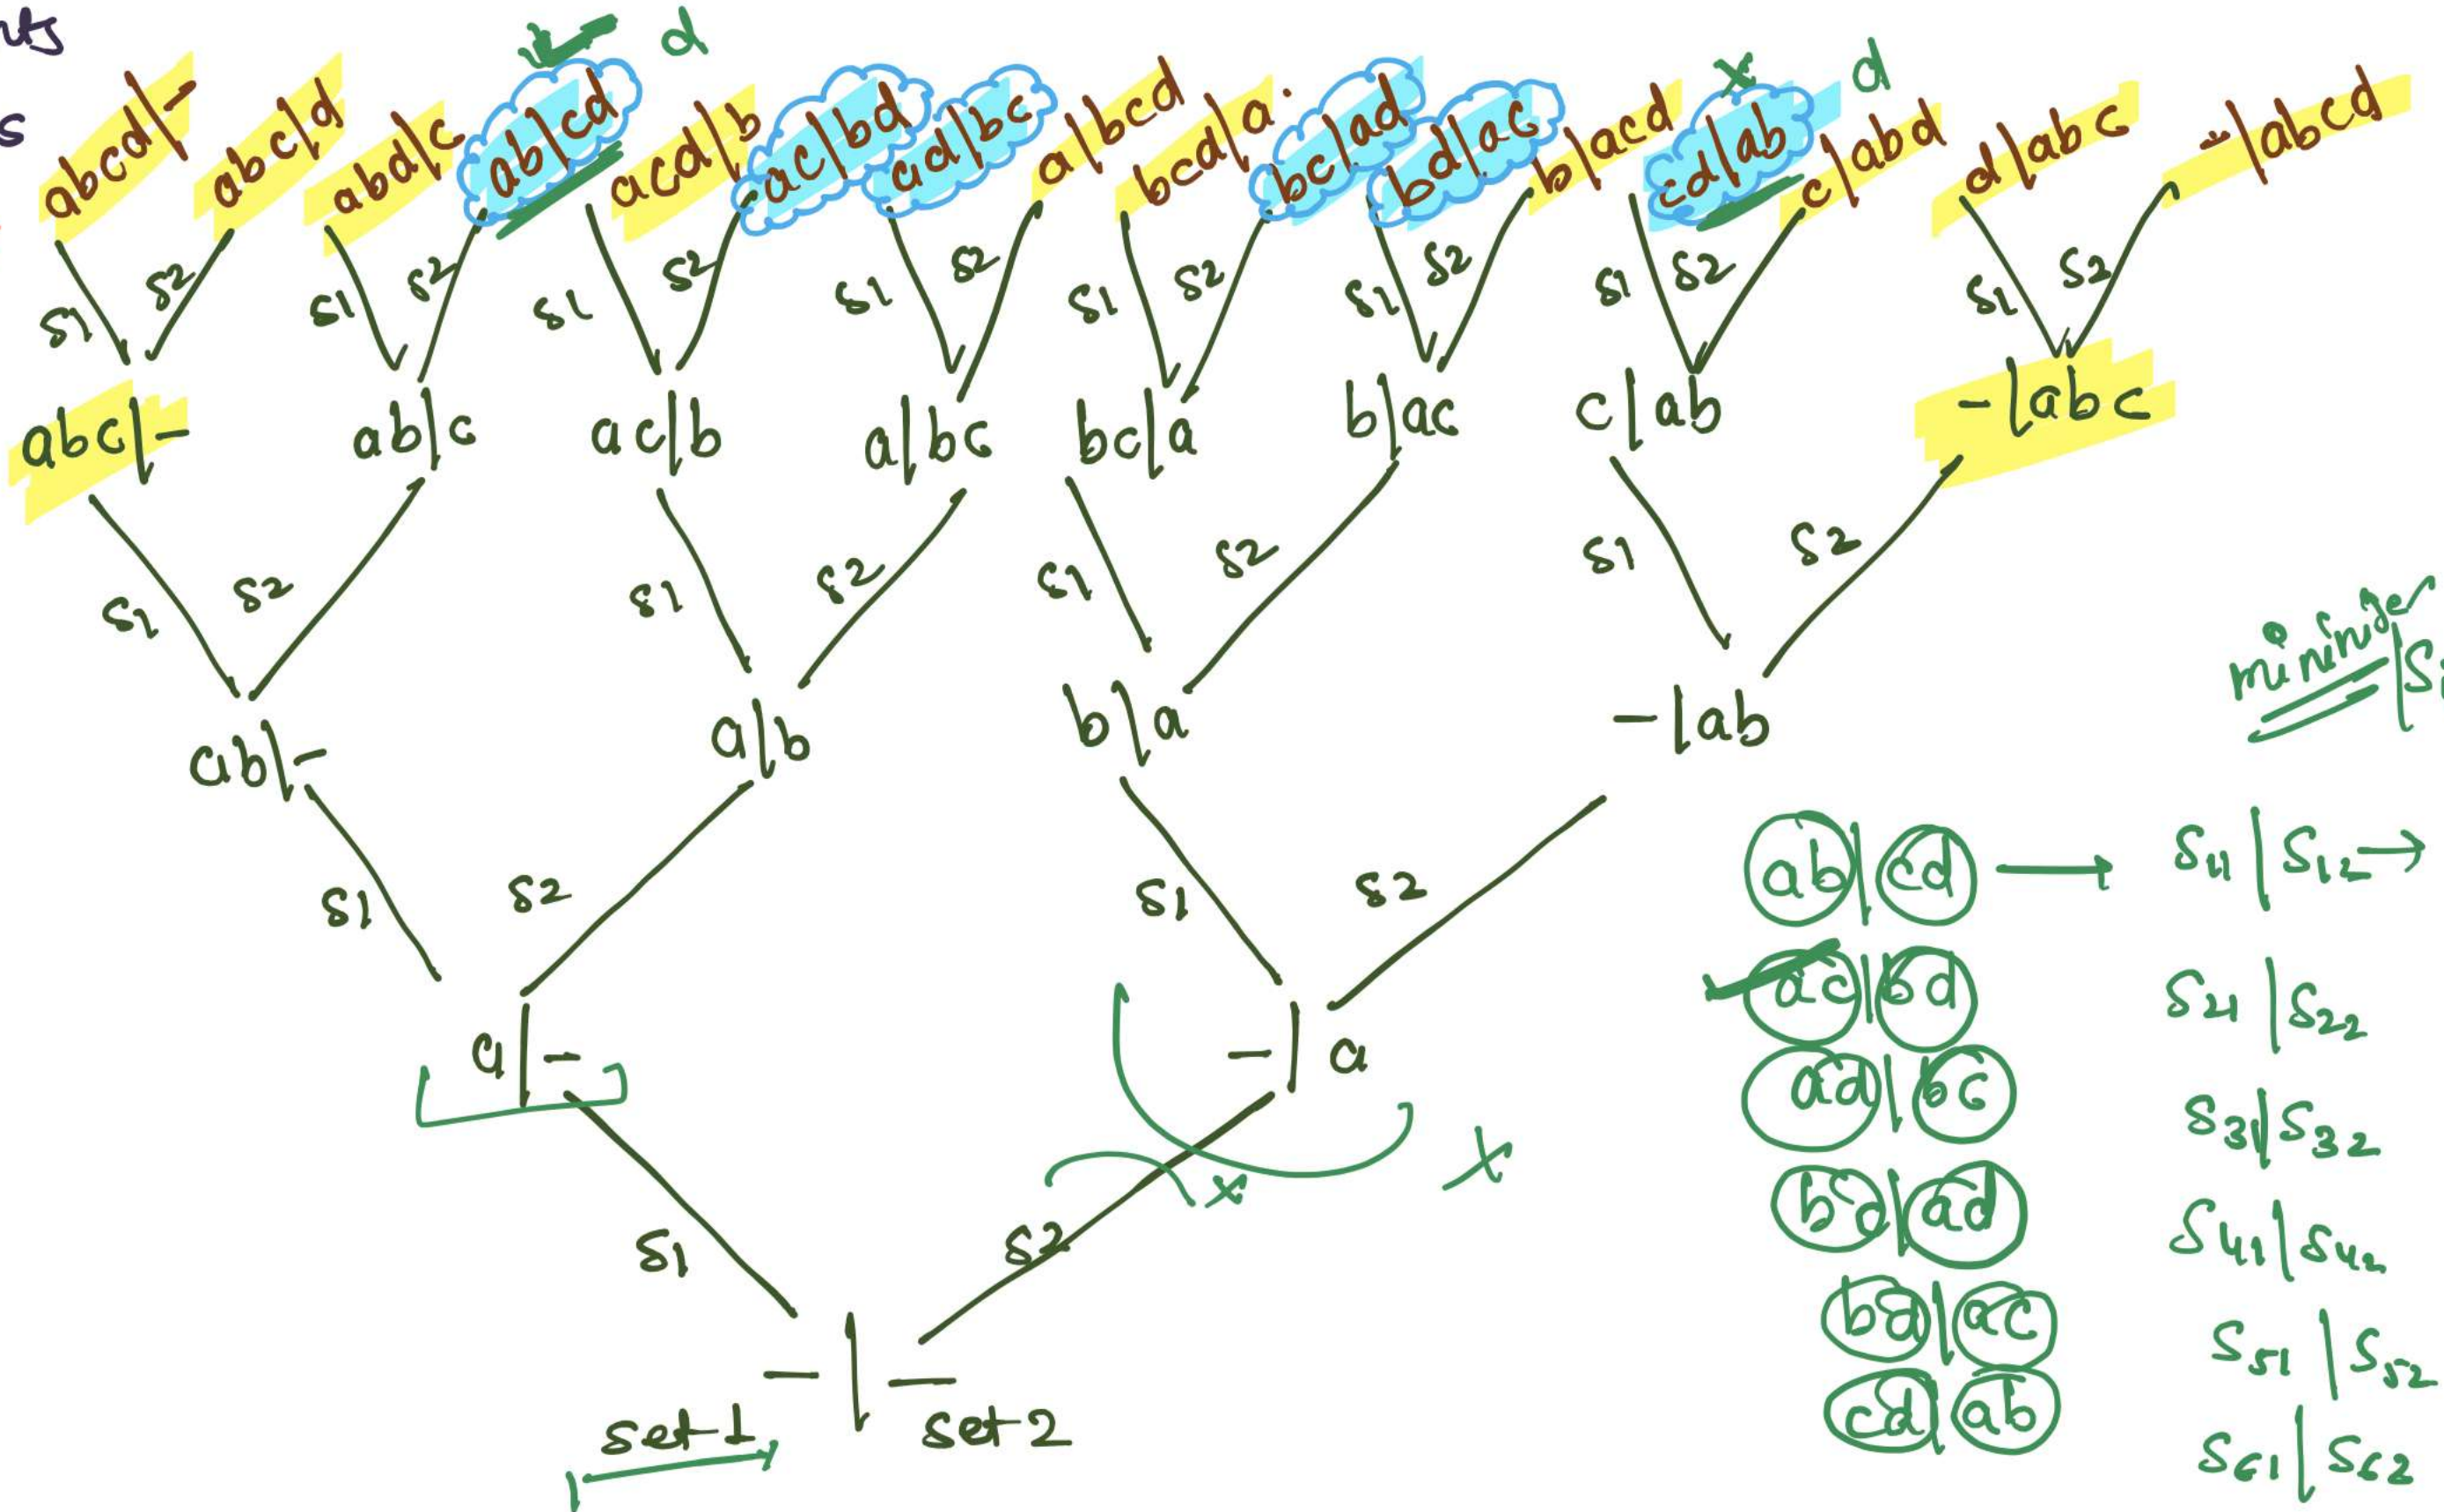 d d
abcd|- abc|d abd|c ab|cd acd|b ac|bd ad|bc a|bcd bcd|a bc|ad bd|ac b|acd cd|ab c|abd d|abc -|abcd
s1 s2 s1 s2 s1 s2 s1 s2 s1 s2 s1 s2 s1 s2 s1 s2
abc|- ab|c ac|b a|bc bc|a b|ac c|ab -|abc
s1 s2 s1 s2 s1 s2 s1 s2
ab|- a|b b|a -|ab
s1 s2 s1 s2
a|- -|a
s1 s2
-|-
set-1 set-2
minimize
ab|cd → S11|S12 →
ac|bd S21|S22
ad|bc S31|S32
|ad S41|S42
bd|ac S51|S52
cd|ab S61|S62